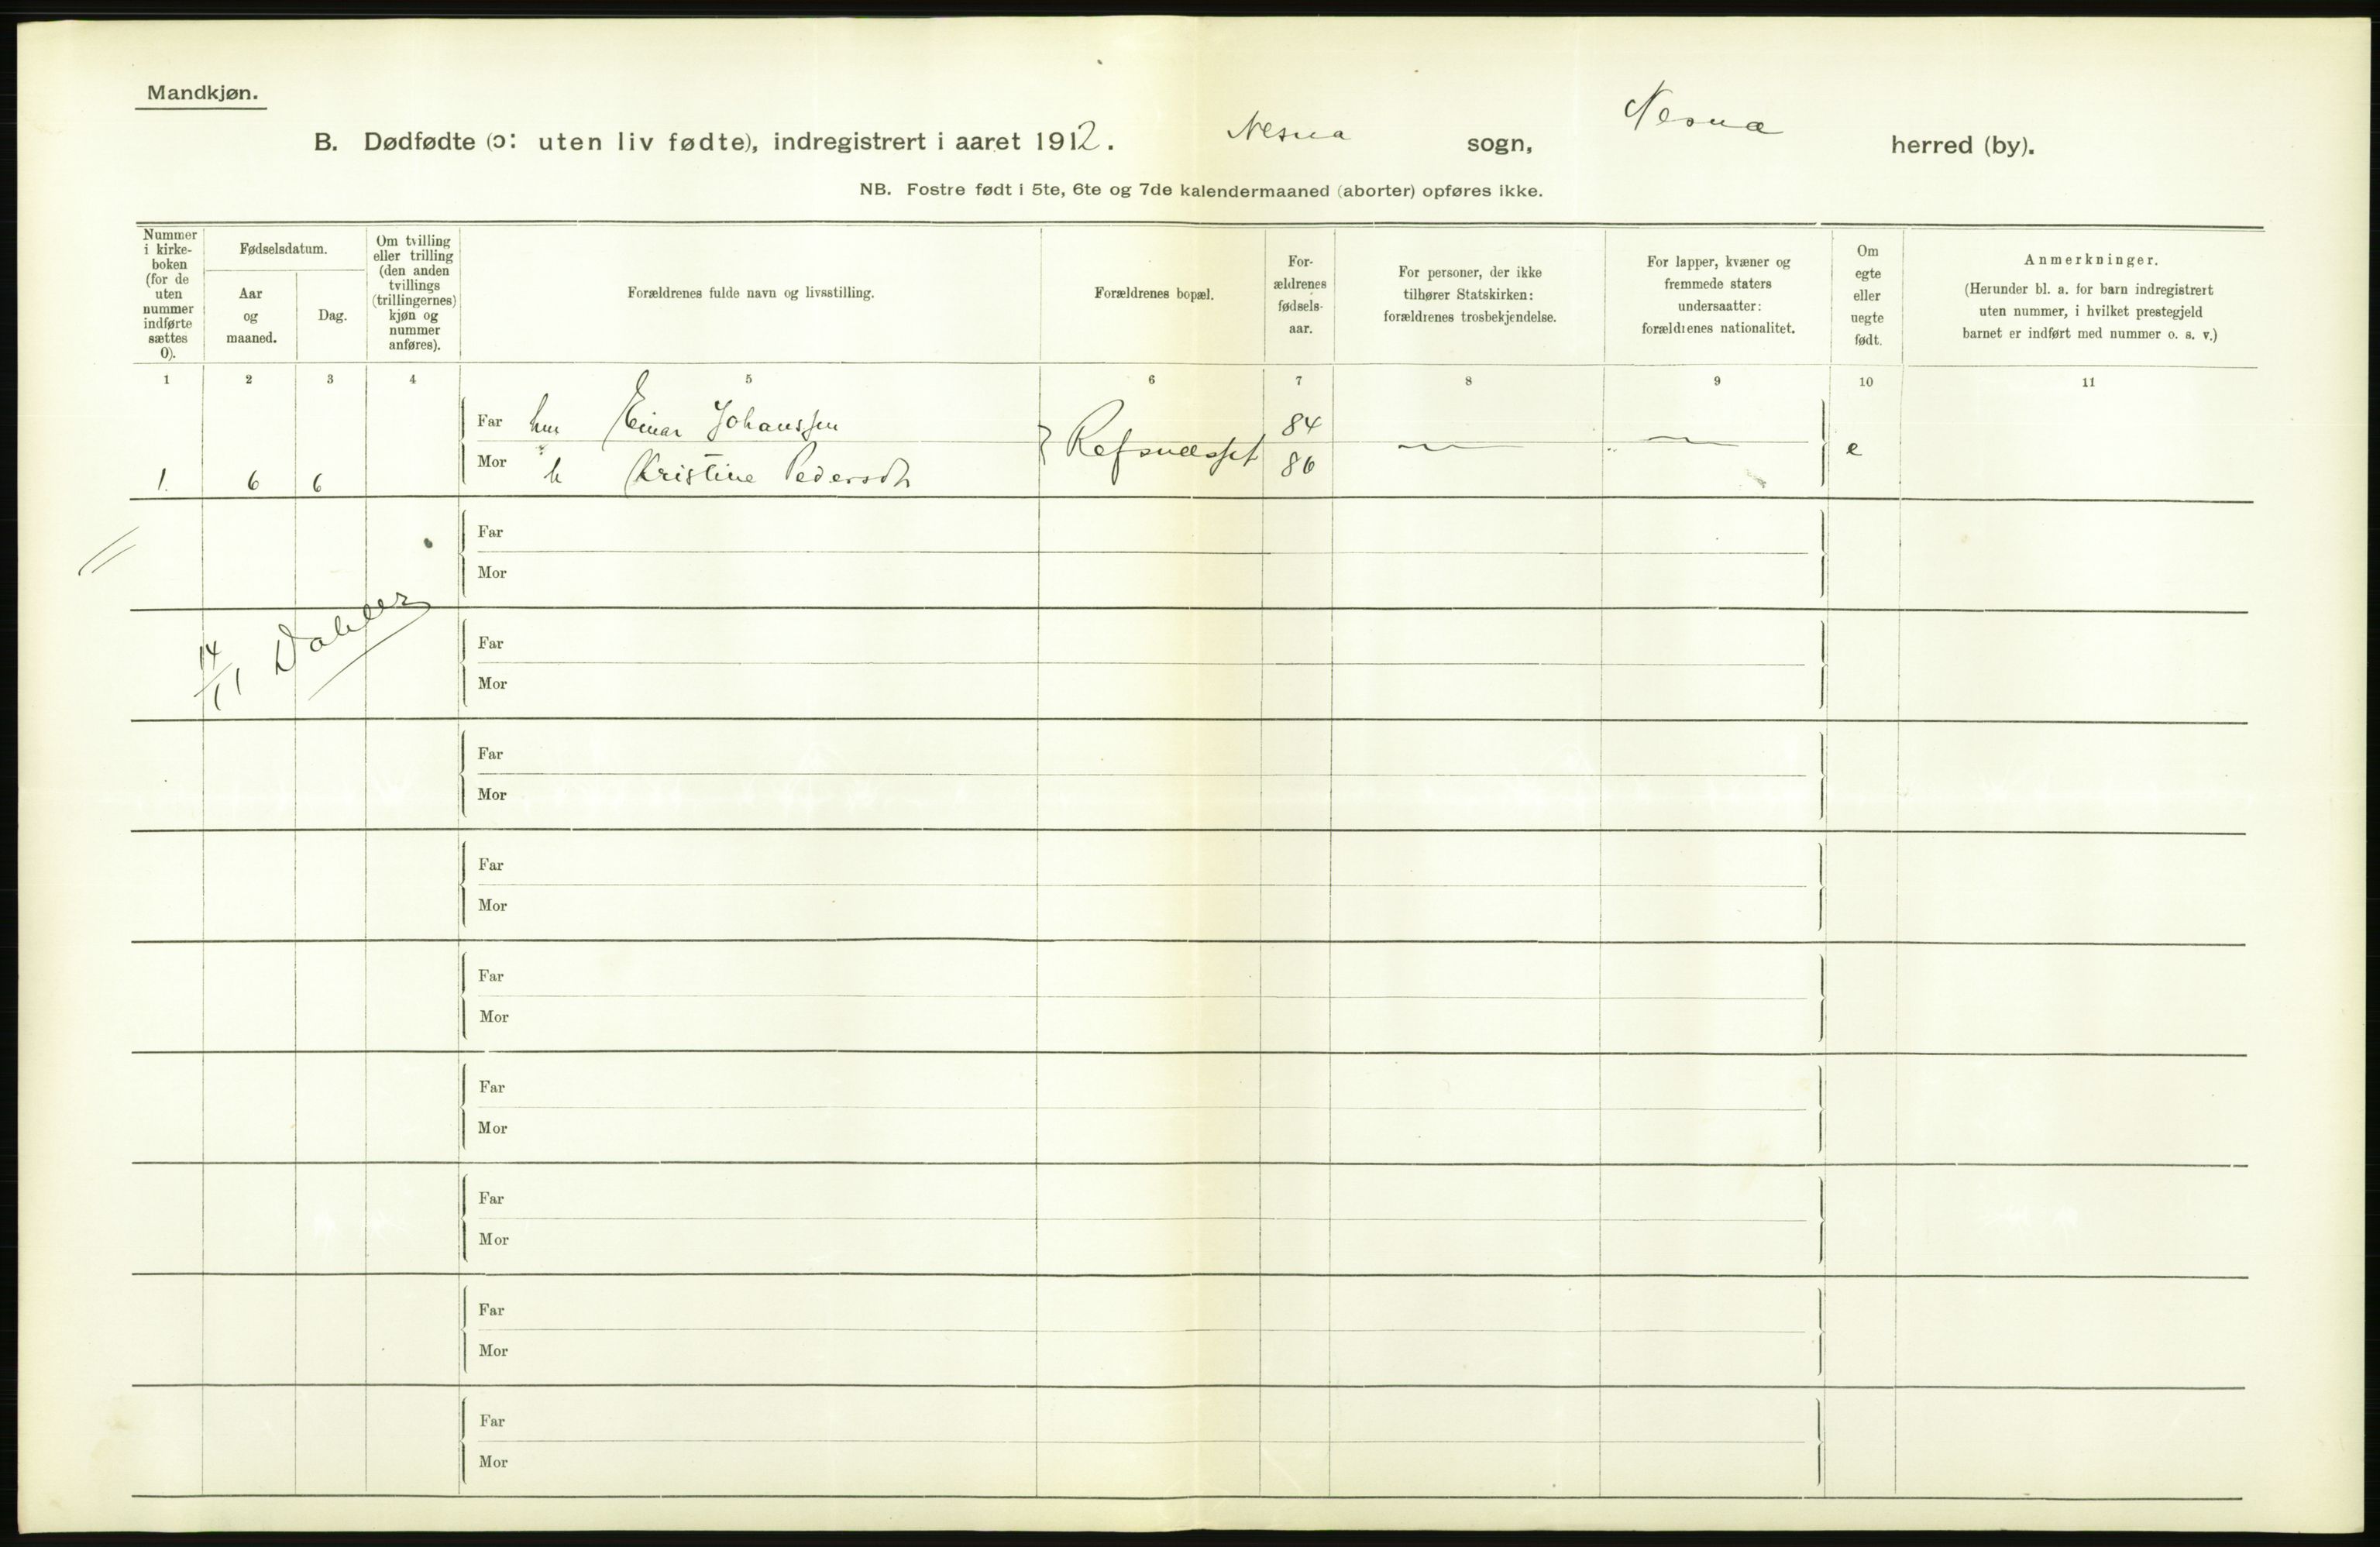 Mandkjøn.
B. Dødfødte (ɔ: uten liv fødte), indregistrert i aaret 1912. Nesna sogn, Nesna herred (by).
NB. Fostre født i 5te, 6te og 7de kalendermaaned (aborter) opføres ikke.
Nummer
i kirke-
boken
(for de
uten
nummer
indførte
sættes
0).
Fødselsdatum.
Aar
og
maaned.
Dag.
Om tvilling
eller trilling
(den anden
tvillings
(trillingernes)
kjøn og
nummer
anføres).
Forældrenes fulde navn og livsstilling.
Forældrenes bopæl.
For-
ældrenes
fødsels-
aar.
For personer, der ikke
tilhører Statskirken:
forældrenes trosbekjendelse.
For lapper, kvæner og
fremmede staters
undersaatter:
forældrenes nationalitet.
Om
egte
eller
uegte
født.
Anmerkninger.
(Herunder bl. a. for barn indregistrert
uten nummer, i hvilket prestegjeld
barnet er indført med nummer o. s. v.)
1 2 3 4 5 6 7 8 9 10 11
Far Einar Johanssen 84
1. 6 6 Mor Kristine Pedersdt 86 e
Far
Mor
14/11
Far
Mor
Far
Mor
Far
Mor
Far
Mor
Far
Mor
Far
Mor
Far
Mor
Far
Mor